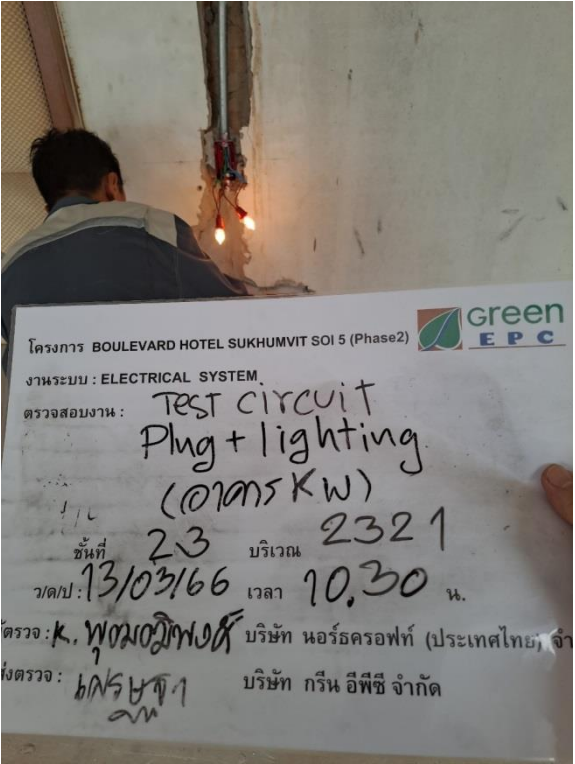 Green
EPC
โครงการ BOULEVARD HOTEL SUKHUMVIT SOI 5 (Phase2)
งานระบบ : ELECTRICAL SYSTEM
ตรวจสอบงาน : Test circuit
Plug + lighting
(อาคาร KW)
ชั้นที่ 23 บริเวณ 2321
ว/ด/ป : 13/03/66 เวลา 10.30 น.
ตรวจ : K. บริษัท นอร์ธครอฟท์ (ประเทศไทย) จำ
ส่งตรวจ : เศรษฐา บริษัท กรีน อีพีซี จำกัด